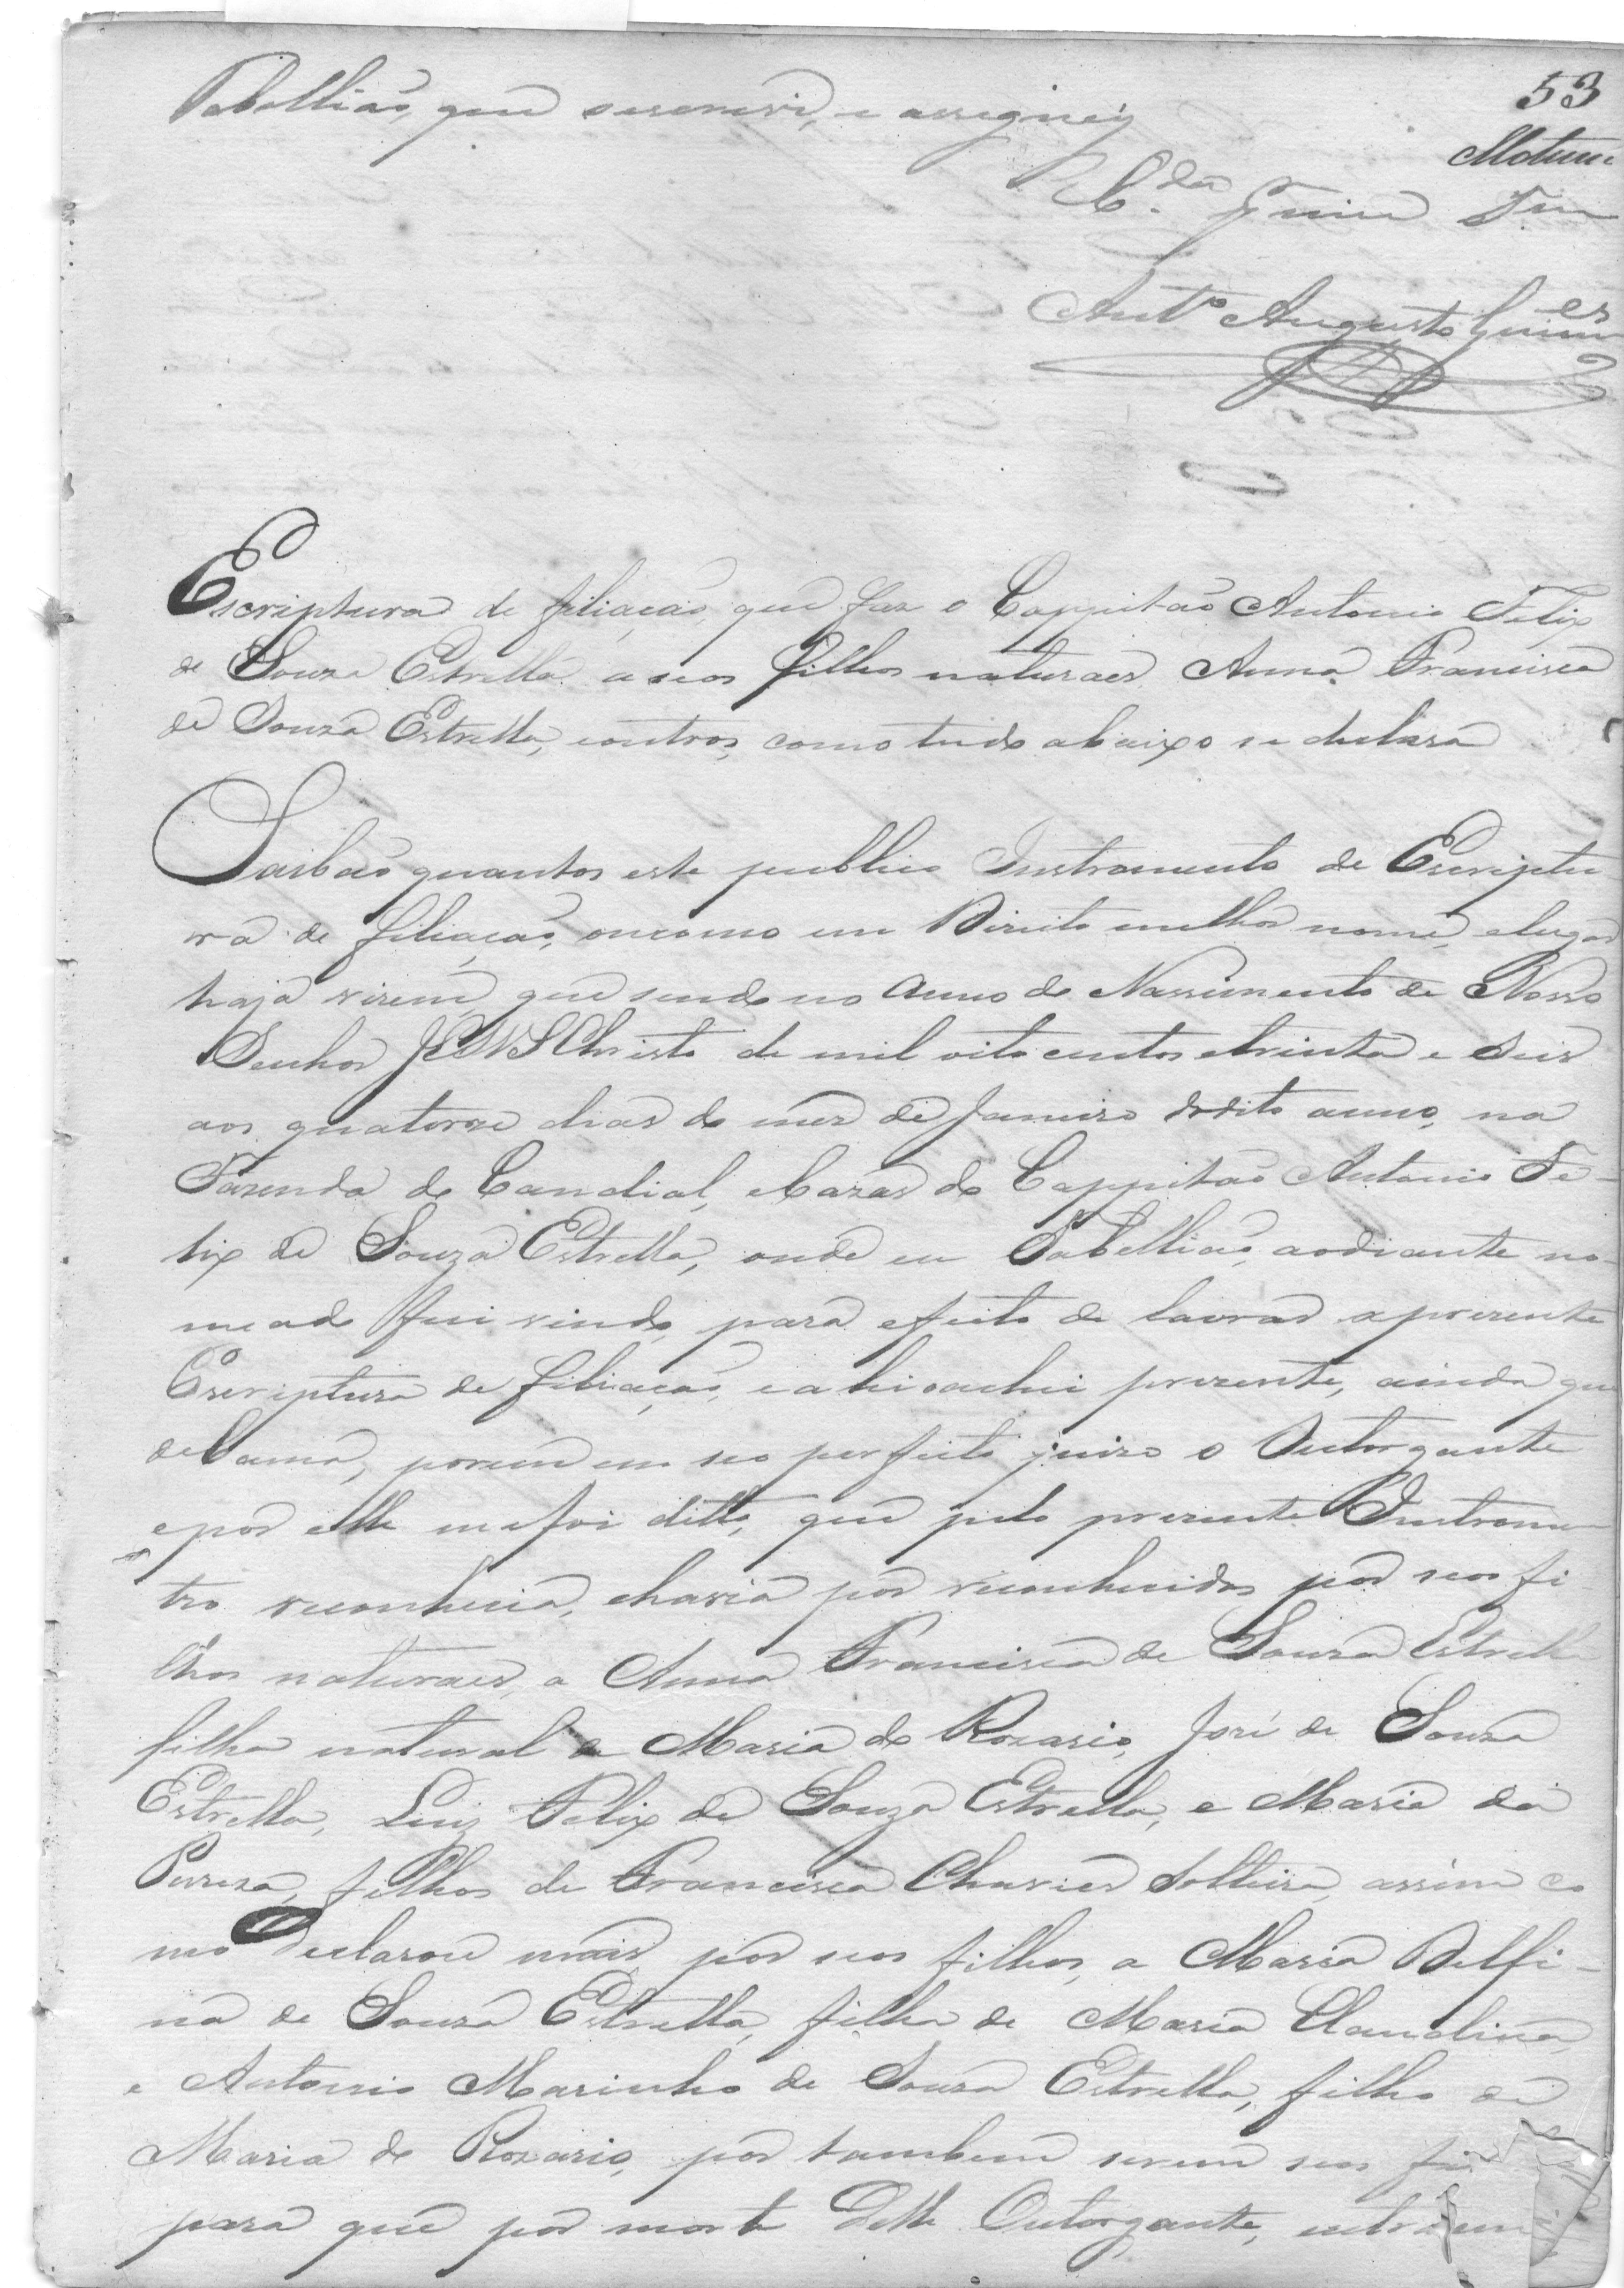 53
Tabelliaõ, que escrevi, e assignéy
Ant.º Augusto Guim.es
Escriptura de filiaçaõ, que faz o Cappitaõ Antonio Felix
de Souza Estrella a seos filhos naturaes Anna Francisca
de Souza Estrella, e outros, como tudo abaixo se declara
Saibaõ quantos este publico Instromento de Escriptu
ra de filiaçaõ, ou como em Direito melhor nome, e lugar
haja virem, que sendo no Anno do Nassimento de Nosso
Senhor JESUS Christo de mil oito centos e trinta e seis
aos quatorze dias do mez de Janeiro do dito anno, na
Fazenda do Candial, e Cazas do Cappitaõ Antonio Fe-
lix de Souza Estrella, onde eu Tabelliaõ, ao diante no-
meado fui vindo, para efeito de lavrar a prezente
Escriptura de filiaçaõ, e ahi o achei prezente, ainda que
de Cama, porem em seo perfeito juizo o Outorgante
e por elle me foi ditto, que pelo prezente Instromen
tro reconhecia, e havia por reconhecidos por seos fi
lhos naturaes, a Anna Francisca de Souza Estrella
filha natural de Maria do Rozario, José de Souza
Estrella, Luiz Felix de Souza Estrella, e Maria da
Pureza, filhos de Francisca Chavier Solteira, assim co
mo declarou mais por seos filhos, a Maria Delfi-
na de Souza Estrella, filha de Maria Claudina,
e Antonio Marinho de Souza Estrella, filho de
Maria do Rozario, por tambem serem seos fi
para que por morte delle Outorgante, entrem